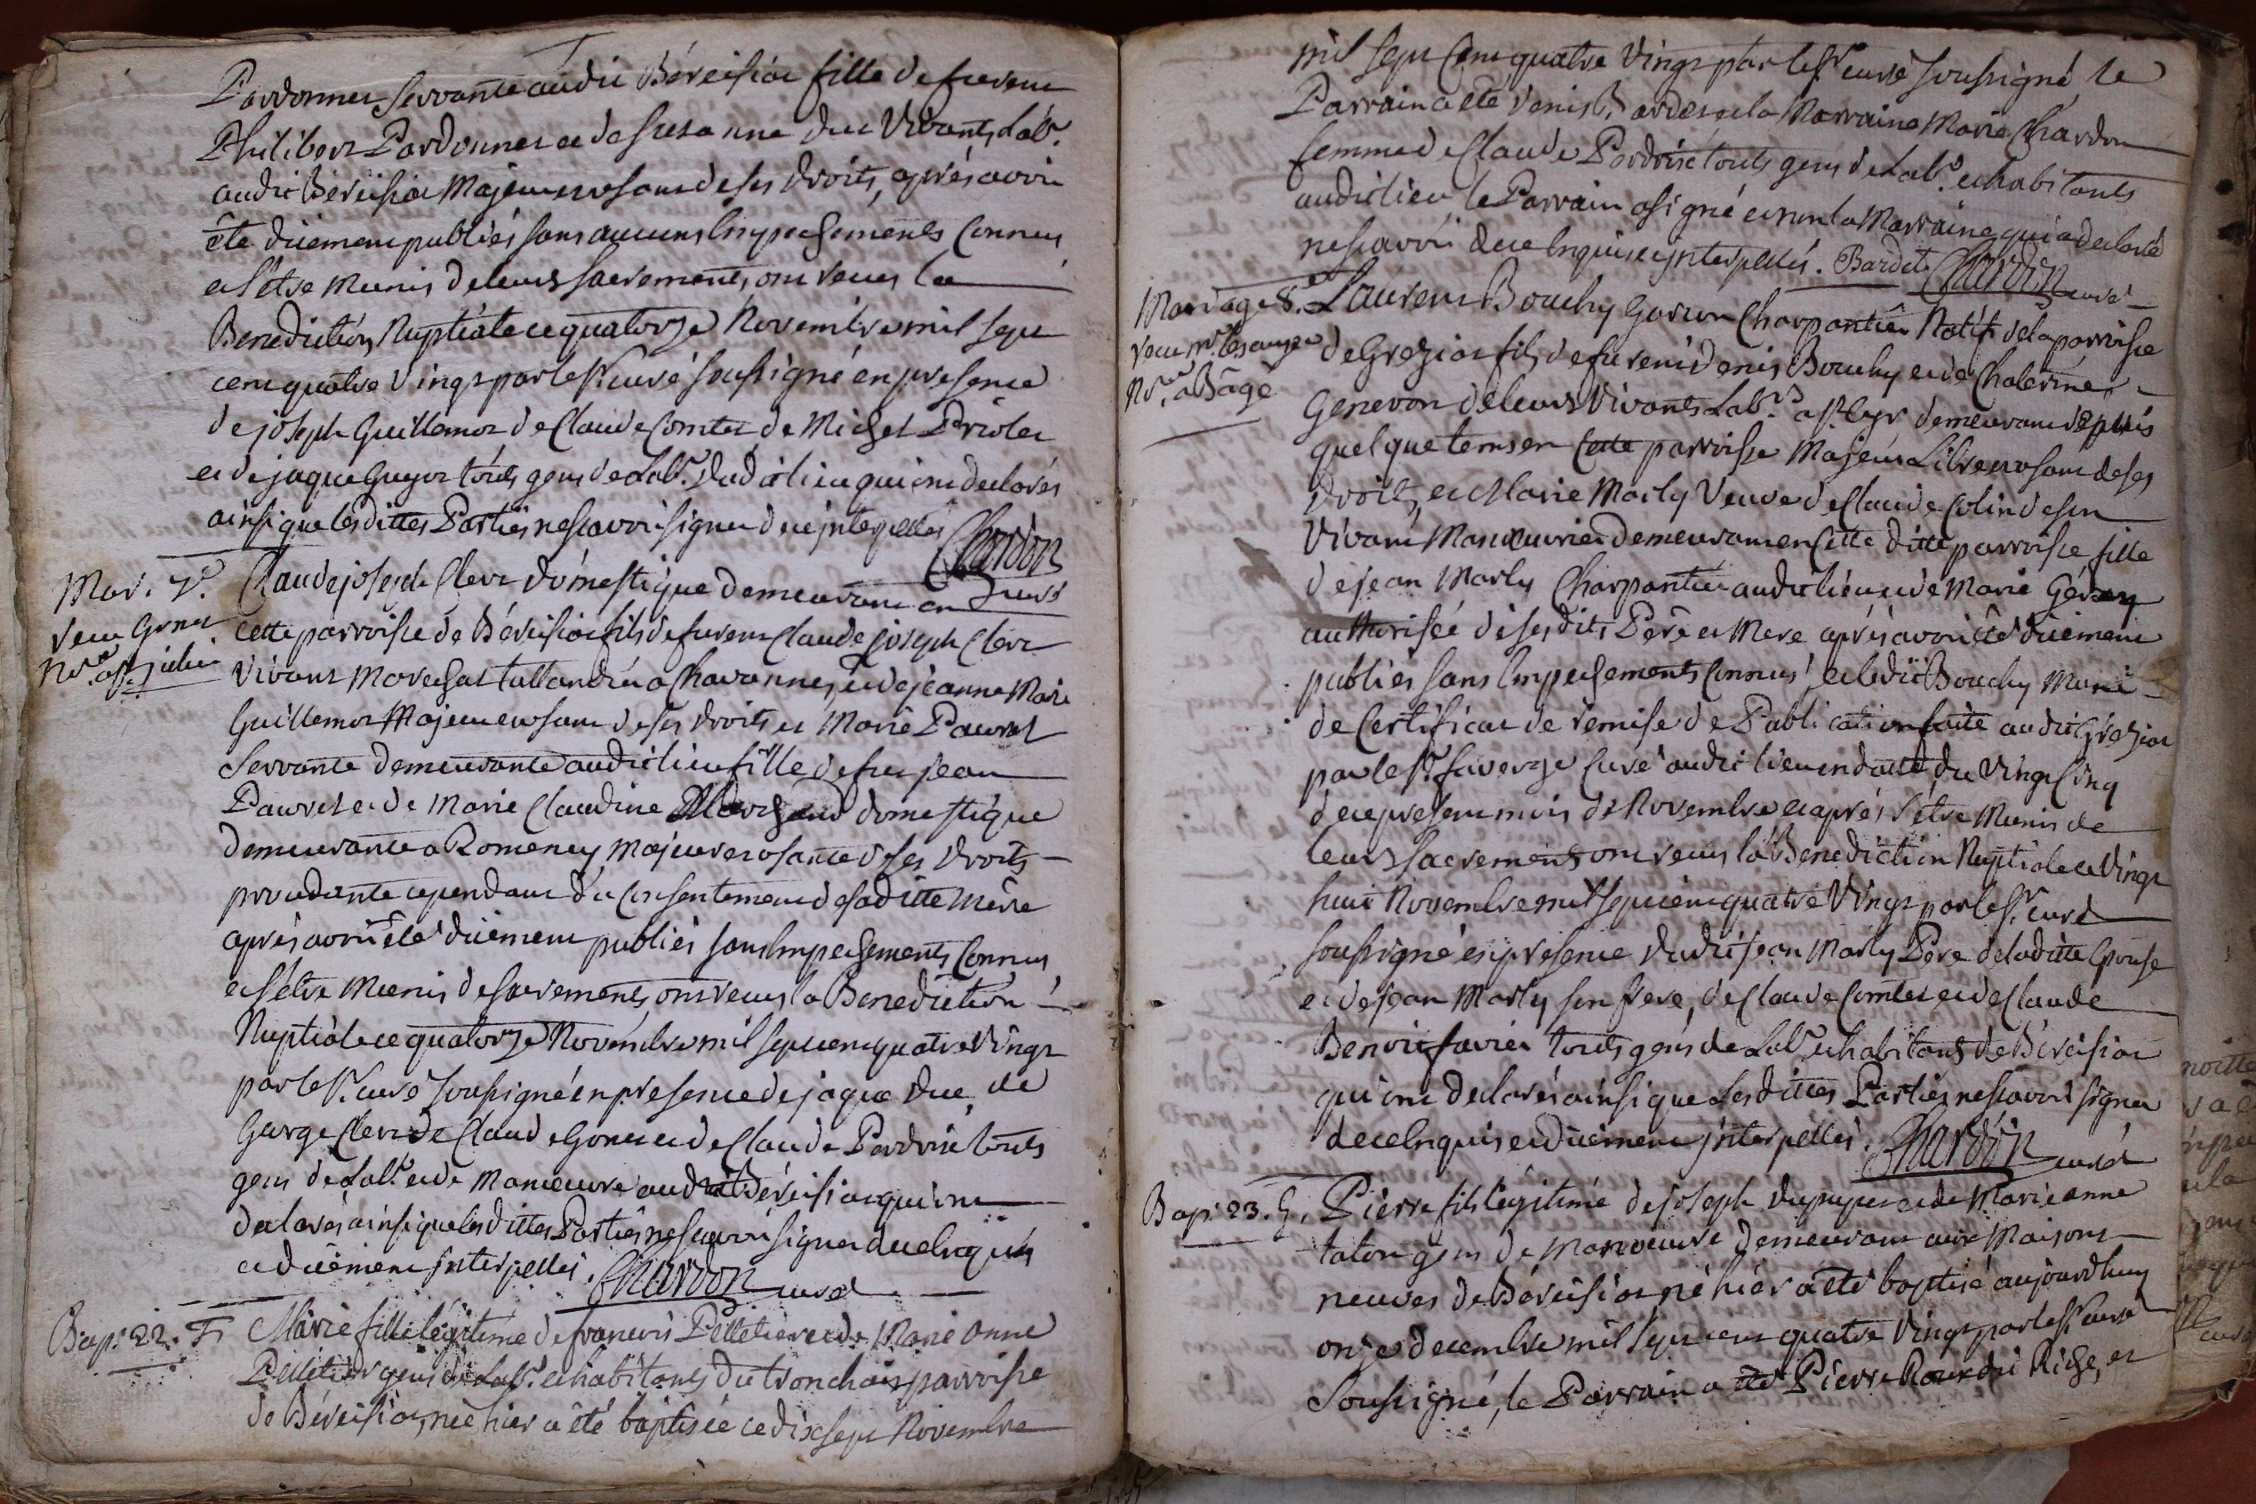 Pardonnet Servante audit Béréisiat fille de furent
Philibert Pardonnet et de Susanne Duc Vivants Lab.rs
audit Béréisiat Majeure usant de ses droits, après avoir
été düement publiés sans aucuns Empechements Connus
et s'être Munis de leurs sacrements, ont reçus la
Benediction Nuptiale ce quatorze Novembre mil sept
cent quatre Vingt par le Sr. curé soussigné en presence
de joseph Guillemot de Claude Comtet, de Michel
et de jaque Guyot touts gens de Lab.r dudit lieu qui ont declarés
ainsi que lesdittes Parties ne sçavoir signer de ce interpellés Chardon
curé
Mar. 7.e
reçu Gonet
N.re a St. julien
Claude joseph Clerc domestique demeurant en
cette parroisse de Béréisiat fils de furent Claude joseph Clerc
Vivant Marechal tallandier a Chavannes, et de jeanne Marie
Guillemot Majeur usant de ses droits et Marie Pauvret
Servante demeurante audit lieu fille de feu jean
Pauvret et de Marie Claudine domestique
demeurante a Romenay Majeure usante de ses droits
procedante cependant du Consentement de sa ditte Mère
après avoir été düement publiés sans Empechements Connus
et s'etre Munis de sacrements, ont reçus la Benediction
Nuptiale ce quatorze Novembre mil sept cent quatre Vingt
par le Sr. curé soussigné en presence de jaque Duc, de
George Clerc de Claude Gonet et de Claude Perdrix touts
gens de Lab.r et de Manœuvre audit Béréisiat qui ont
declarés ainsi que lesdittes Parties ne sçavoir signer de ce Enquis
et düement interpellés. Chardon curé
Bap. 22. F.
Marie fille légitime de francois Pelletier et de Marie Anne
Pelletier gens de Lab.r et habitants du tronchais parroisse
de Béréisiat, née hier a été baptisée ce dix sept Novembre
mil sept Cent quatre Vingt par le Sr. curé soussigné, le
Parrain a été Denis Bardet et la Marraine Marie Chardon
femme de Claude Perdrix touts gens de Lab.r et habitants
audit lieu le Parrain a signé et non la Marraine qui a declaré
ne sçavoir de ce Enquise et interpellés. Bardet Chardon
curé
Mariage 8.e
reçu M.r
N.re a Bâgé
Laurent Bouchy Garçon Charpantier Natif de la parroisse
de Greziat fils de furent denis Bouchy et de Chaterine
Genevon de leurs Vivants Lab.rs a St. Cyr demeurant depuis
quelque tems en Cette parroisse Majeur Libre usant de ses
droits, et Marie Marly Veuve de Claude Colin de son
Vivant Manœuvrier demeurant en Cette ditte parroisse, fille
de jean Marly Charpantier audit lieu et de Marie
authorisée de ses dits Père et Mere après avoir été düement
publiés sans Empechements Connus, et ledit Bouchy Muni
de Certificat de remise de Publication faite audit Greziat
par le Sr. faverge Curé audit lieu en datte du Vingt Cinq
de ce present mois de Novembre et après s'être Munis de
leurs sacrements ont reçus la Benediction Nuptiale ce Vingt
huit Novembre mil sept cent quatre Vingt par le Sr. curé
soussigné en presence dudit jean Marly Père de la ditte Epouse
et de jean Marly son frere, de Claude Comtet et de Claude
Benoit favier touts gens de Lab.r et habitants de Béréisiat
qui ont declarés ainsi que Lesdittes Parties ne sçavoir signer
de ce Enquis et düement interpellés. Chardon curé
Bap. 23. G.
Pierre fils légitime de joseph Dupupet et de Marie anne
taton gens de Manœuvre demeurant aux Maisons
neuves de Béréisiat, né hier a été baptisé aujourdhuy
onze decembre mil sept cent quatre Vingt par le Sr. curé
Soussigné, le Parrain a été Pierre et